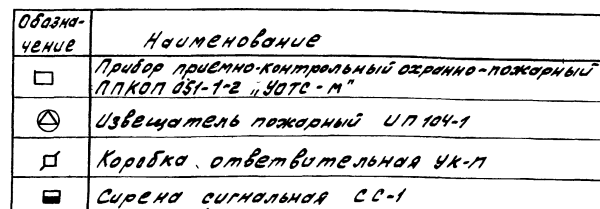 Обозна-
чение
Наименование
Прибор приемно-контрольный охранно-пожарный
ППКОП 051-1-2 „УОТС-М"
Извещатель пожарный ИП 104-1
Коробка ответвительная УК-П
Сирена сигнальная СС-1